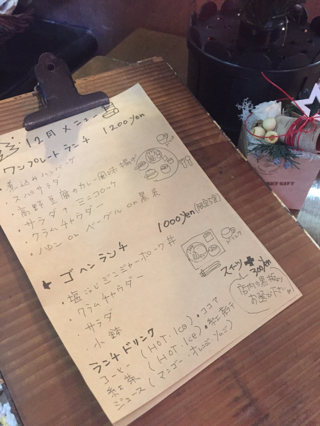 12月メニュー
ワンプレートランチ 1200yen
・煮込みハンバーグ
・スパサラ
・高野豆腐のカレー風味揚げ
・サラダ・ミニコロッケ
・クラムチャウダー
・パン or ベーグル or 黒米
ゴハンランチ 1000yen
・塩こうじジンジャーポーク丼
・クラムチャウダー
・サラダ
・小鉢
スイーツ + 300yen
店内の黒板を
お選び下さい。
ランチドリンク
コーヒー (HOT, ICE)・ココア
紅茶 (HOT, ICE)・紅茶ラテ
ジュース (マンゴー・オレンジ